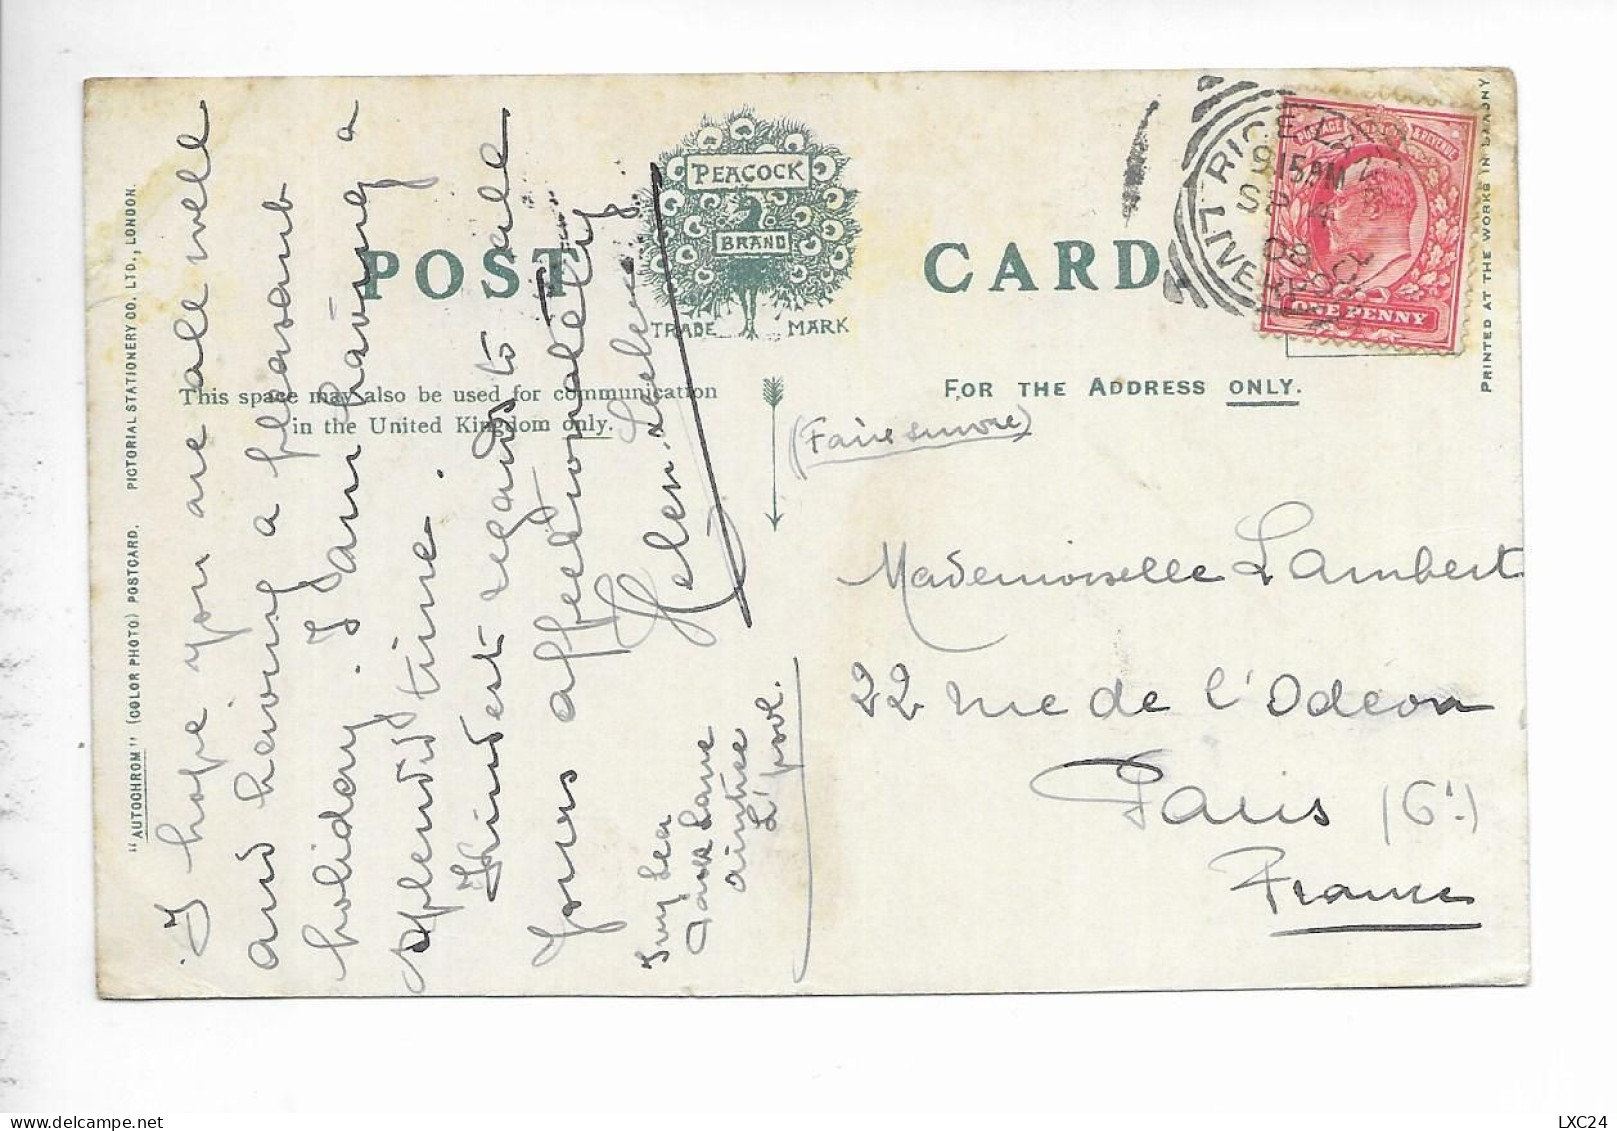 "AUTOCHROM" (COLOR PHOTO) POSTCARD. PICTORIAL STATIONERY CO. LTD., LONDON.
POST CARD
PEACOCK
BRAND
TRADE MARK
This space may also be used for communication
in the United Kingdom only.
FOR THE ADDRESS ONLY.
PRINTED AT THE WORKS IN SAXONY
POSTAGE REVENUE
ONE PENNY
RICE LANE
9.15 PM
SP 4
08
LIVERPOOL
I hope you are all well
and having a pleasant
holiday. I am having a
splendid time.
Kindest regards to all
Yours affectionately
Helen
Park Lane
Aintree
L'pool.
(Faire suivre)
Mademoiselle Lambert
22 rue de l'Odéon
Paris (6e)
France
LXC24